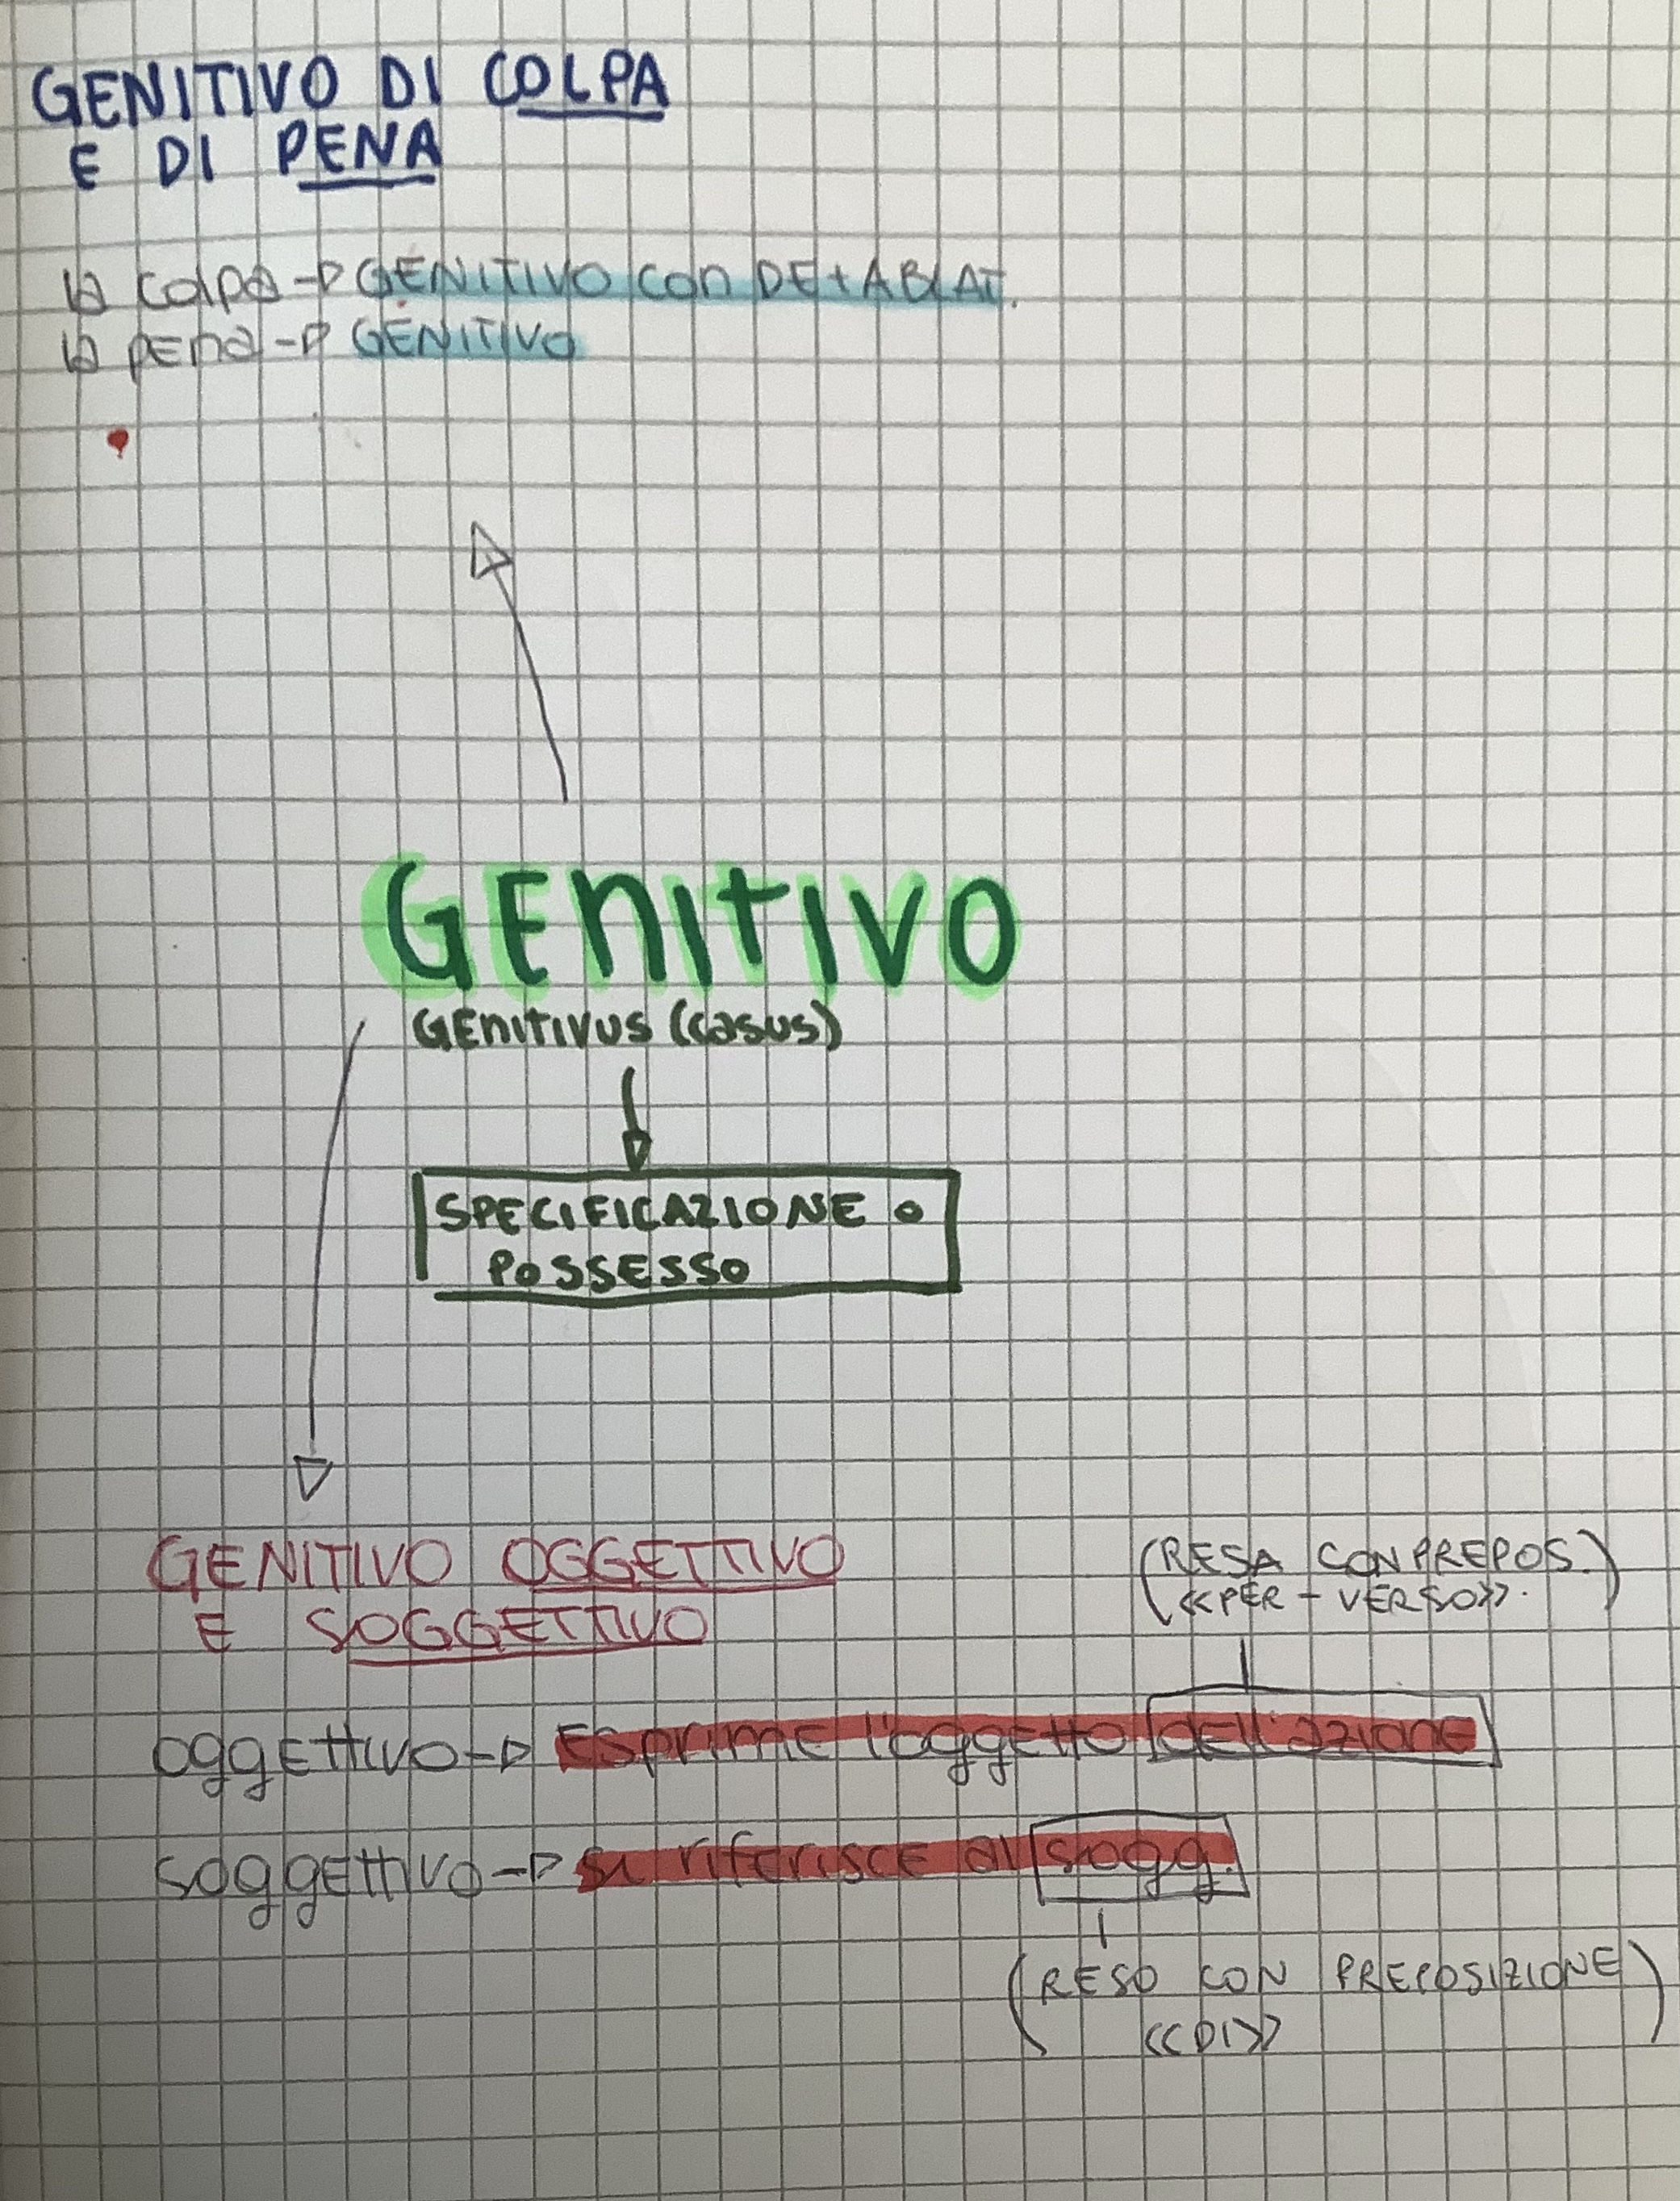 GENITIVO DI COLPA
E DI PENA
colpa → GENITIVO con DE + ABLAT.
pena → GENITIVO
GENITIVO
GENITIVUS (casus)
SPECIFICAZIONE o
POSSESSO
GENITIVO OGGETTIVO
E SOGGETTIVO
(RESA CON PREPOS.)
«PER - VERSO».
oggettivo → Esprime l'oggetto dell'azione
soggettivo → si riferisce al sogg.
(RESO CON PREPOSIZIONE)
«DI»